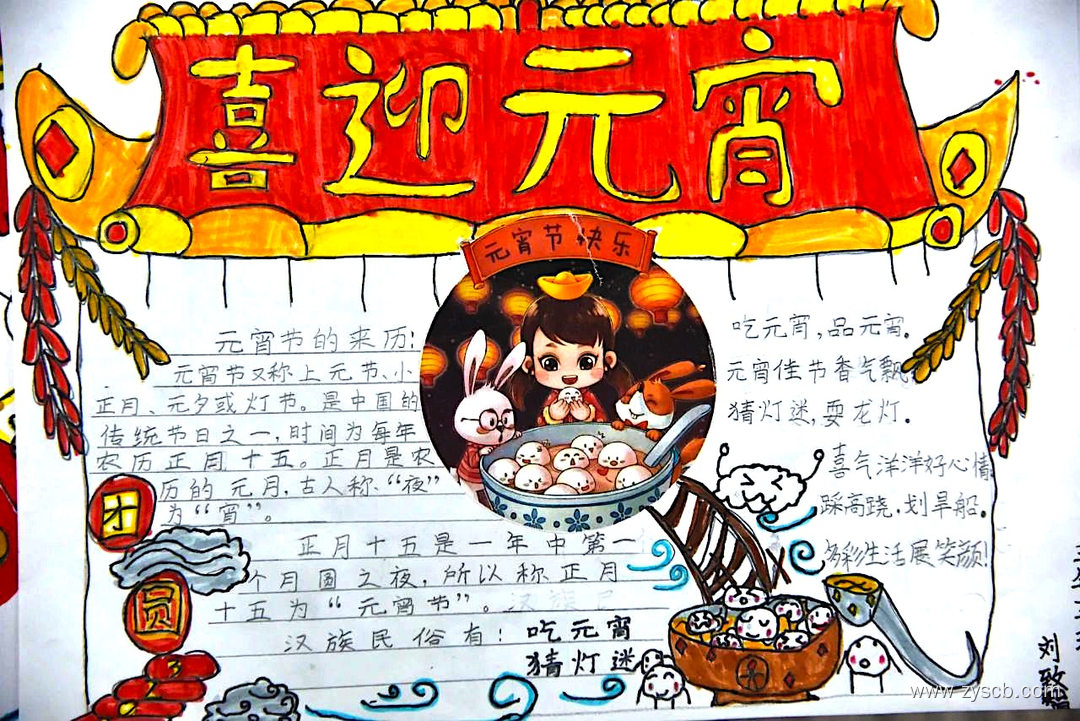 喜迎元宵
元宵节快乐
元宵节的来历:
元宵节又称上元节、小
正月、元夕或灯节。是中国的
传统节日之一,时间为每年
农历正月十五。正月是农
历的元月,古人称、“夜”
为“宵”。
正月十五是一年中第一
个月圆之夜,所以称正月
十五为“元宵节”。
汉族民俗有:吃元宵
猜灯迷
吃元宵,品元宵.
元宵佳节香气飘.
猜灯迷,耍龙灯.
喜气洋洋好心情
踩高跷,划旱船.
多彩生活展笑颜!
团
圆
刘
www.zyscb.com